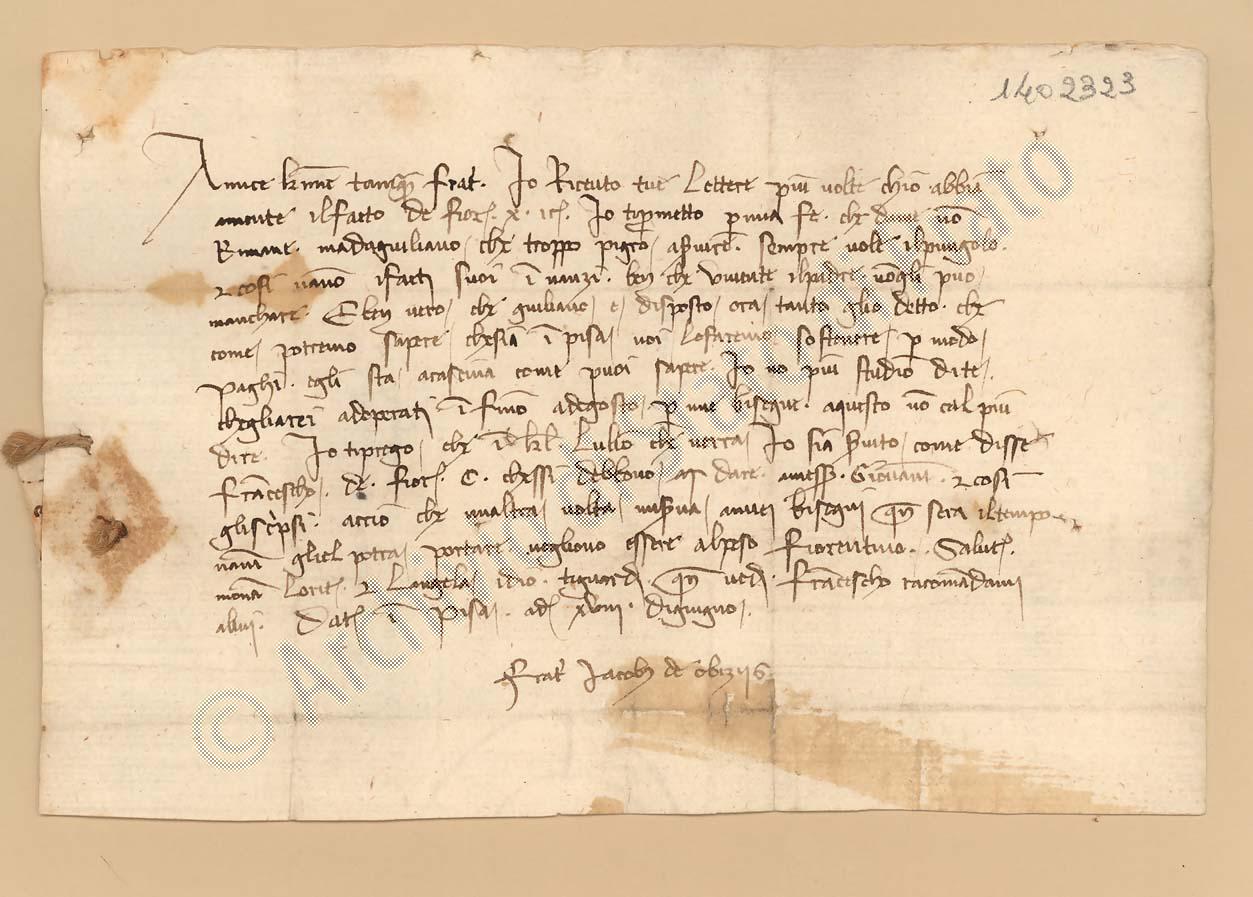 1402323
Amice karissime tamquam frater. Io Ricevto tue Lettere piu volte chio abbia
amente ilfatto de fior. x. Io tiprometto per mia fe. che dime nō
Rimane. madagiuliano, che troppo pigro, asivicē. sempre vole ilpungolo.
⁊ cosi vāno ifatti suoi ī nanzi. ben che vivente ilpadre nōgli puo,
manchare. E ben vero, che giuliano, e, disposto, ora, tanto glio detto. che
come, potremo sapere, chesia ī pisa, noi lofaremo sostenere, per modo,
paghi. egli sta, acascina come puoi sapere. Io no piu studio dite,
chegliarei adoperati ī fino adegosto, per mie bisogne. aquesto nō cal piu
dire. Io tiprego, che ī kl. Lullio che verra, Io sia servito, come disse
Frācescho, de. fior. C. chessi debbono, dare. amess. Giovani. ⁊ cosi
gliscripsi. accio che unaltra, volta, miserva, amiei bisogni qn̄ sera iltempo
nāni gliel potra, portare. vogliono essere alpeso fiorentino. Salut.
monā Lorit. ⁊ Langela, idio. tiguardi qn̄ vedi Frācescho racomādami
allui. Dat. ī Pisa, adi xviii. digiugno,.
Frat̄ Jacobus de obizis
© Archivio di Stato di Prato